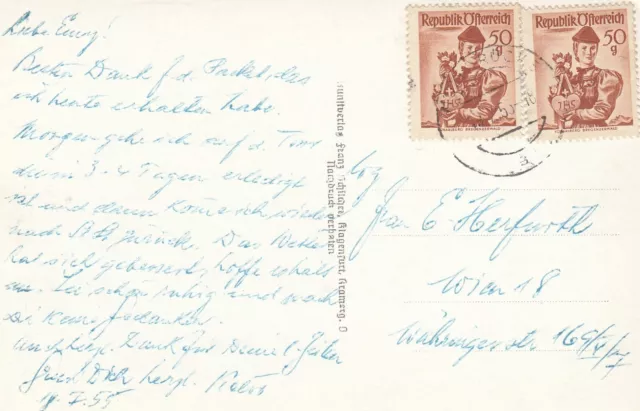 Liebe Emmy!
Besten Dank f. d. Packel, das
ich heute erhalten habe.
Morgen gehe ich auf d. Tour
3-4 Tagen erledigt
ist und dann komme ich wieder
nach zurück. Das Wetter
hat sich gebessert, hoffe es hält
an. Sei schön ruhig und mach
Dir keine Gedanken.
Dank für Deine l.
Grüsst Dich herzl.
7.55
Kunstverlag Franz Schilcher, Klagenfurt, Kramerg. 9
Nachdruck verboten
Republik Österreich
50
g
Republik Österreich
50
g
Frau E. Herfurth
Wien 18
Währingerstr. 169